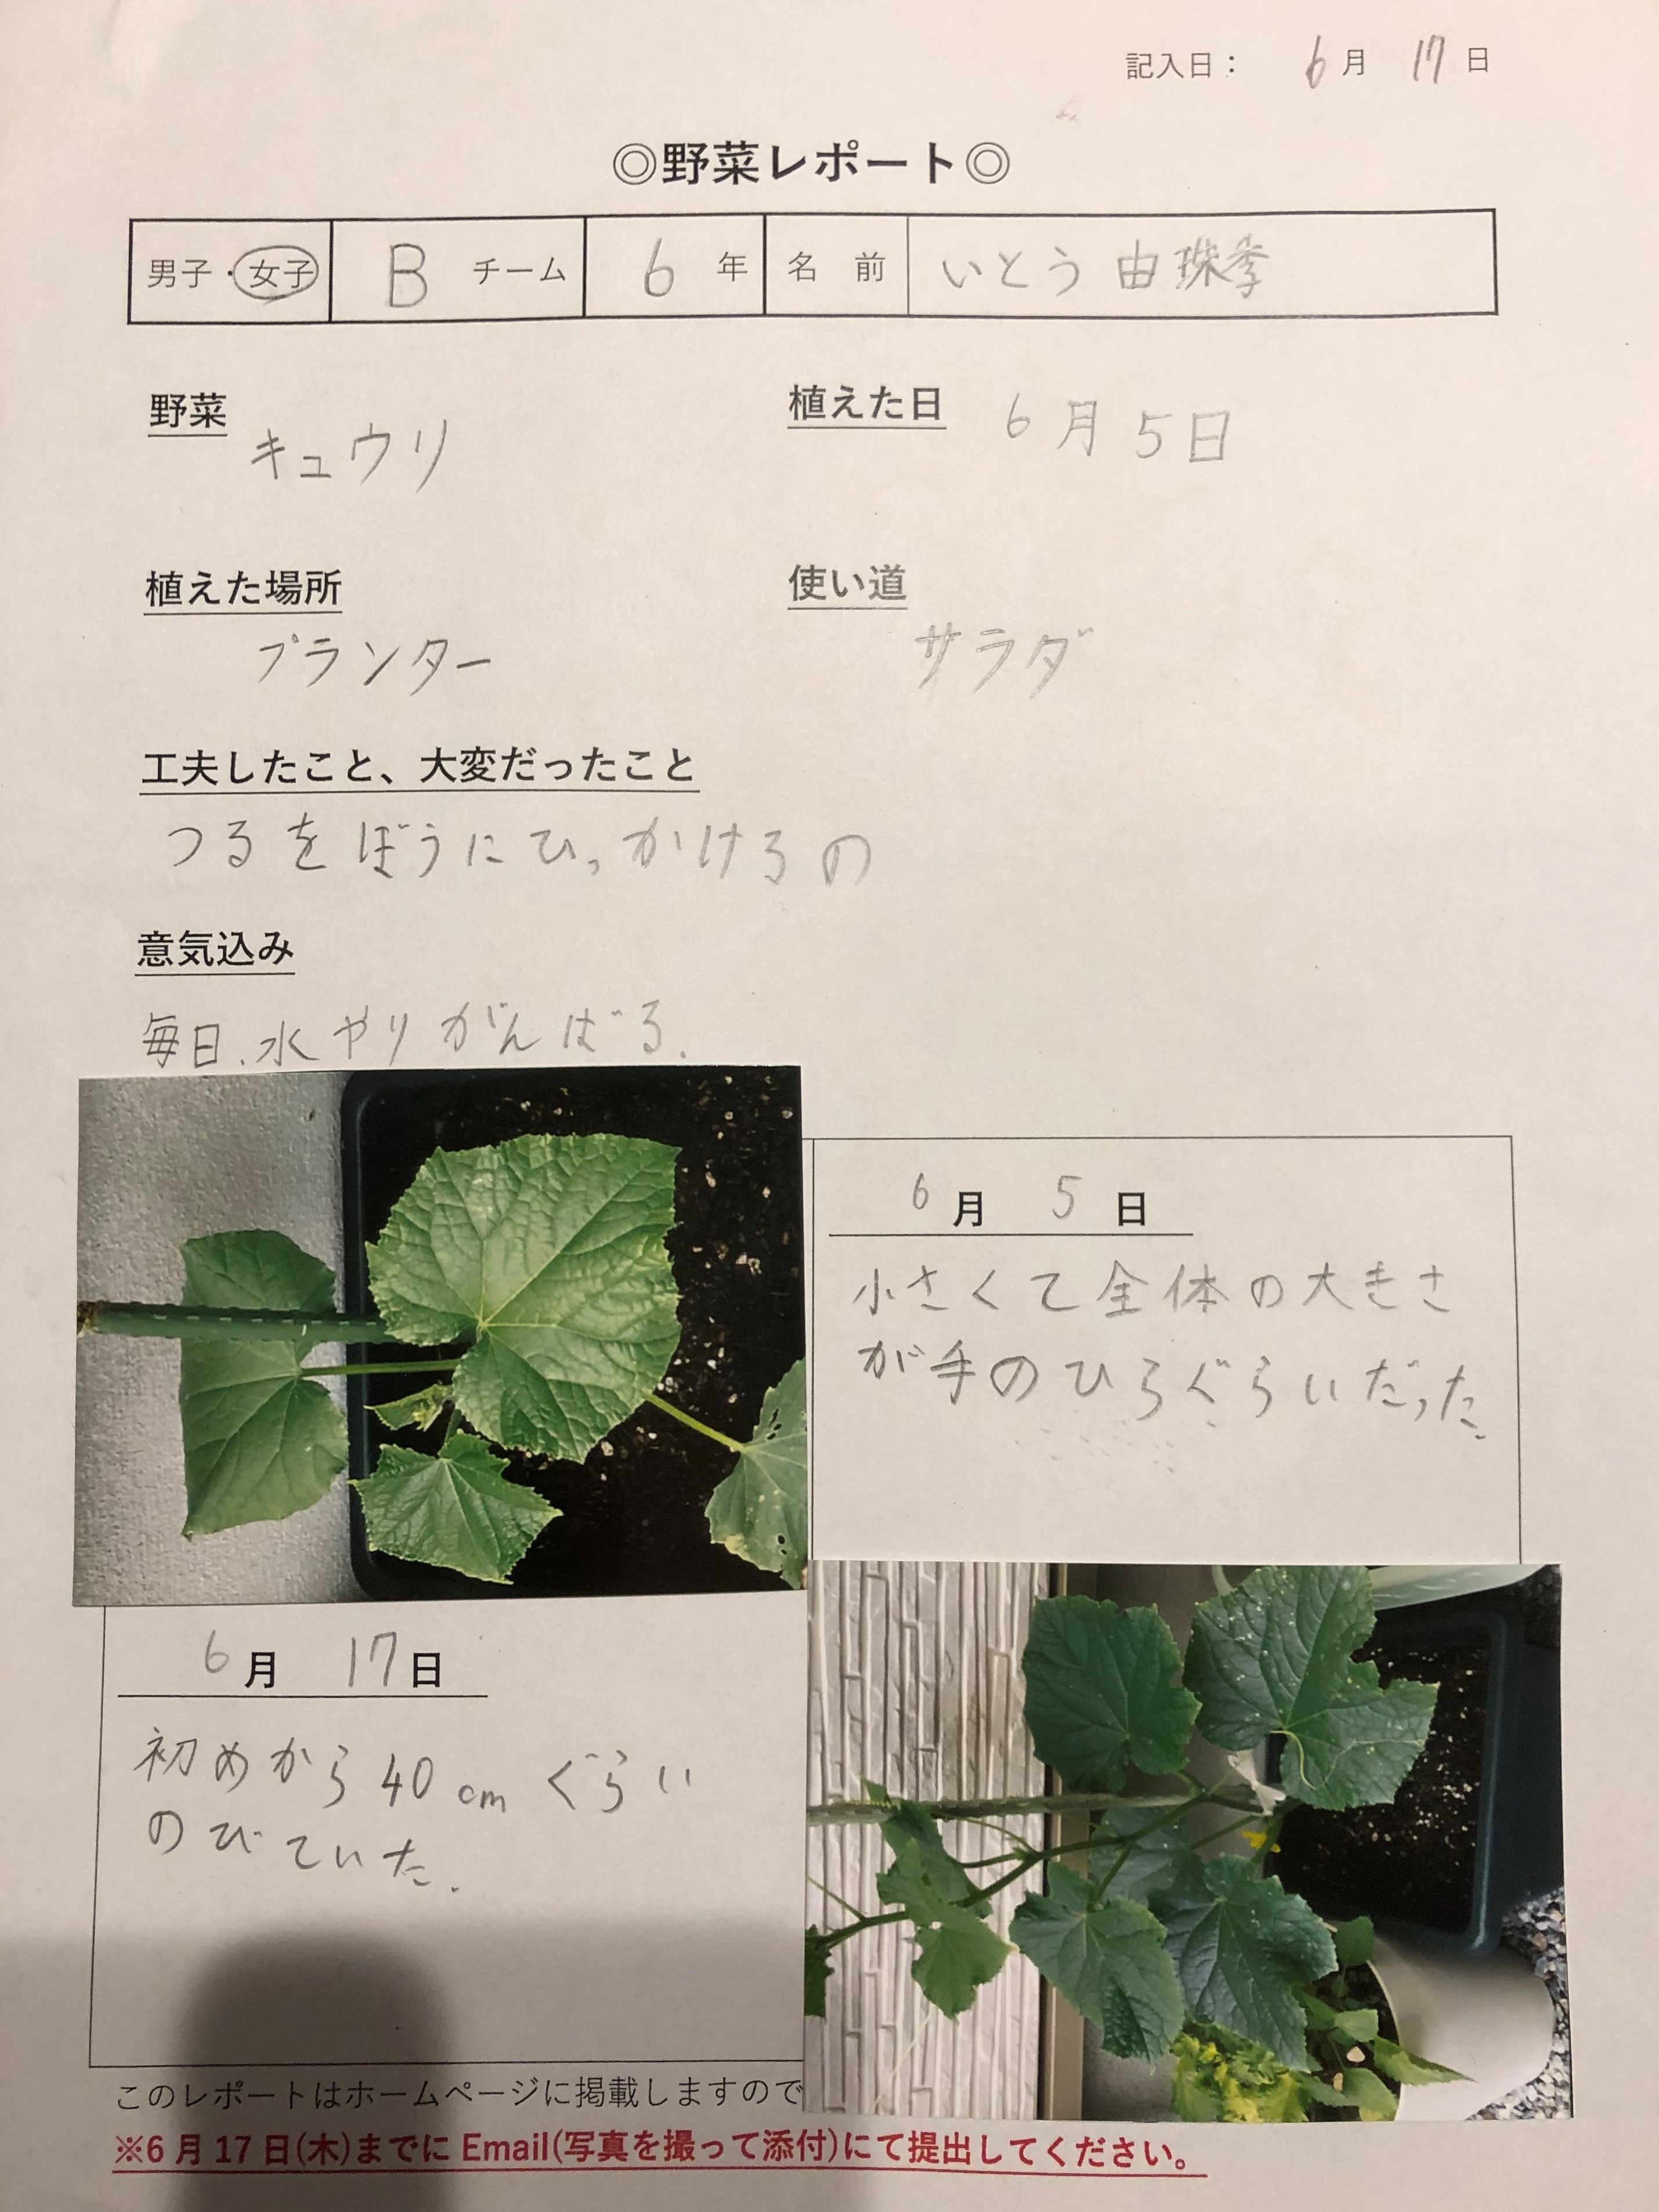 記入日： 6月 17日
◎野菜レポート◎
男子・女子 B チーム 6 年 名 前 いとう 由珠季
野菜
キュウリ
植えた日 6月5日
植えた場所
プランター
使い道
サラダ
工夫したこと、大変だったこと
つるをぼうにひっかけるの
意気込み
毎日、水やりがんばる。
6月 5日
小さくて全体の大きさ
が手のひらぐらいだった。
6月 17日
初めから40cmぐらい
のびていた。
このレポートはホームページに掲載しますので
※6月17日(木)までにEmail(写真を撮って添付)にて提出してください。